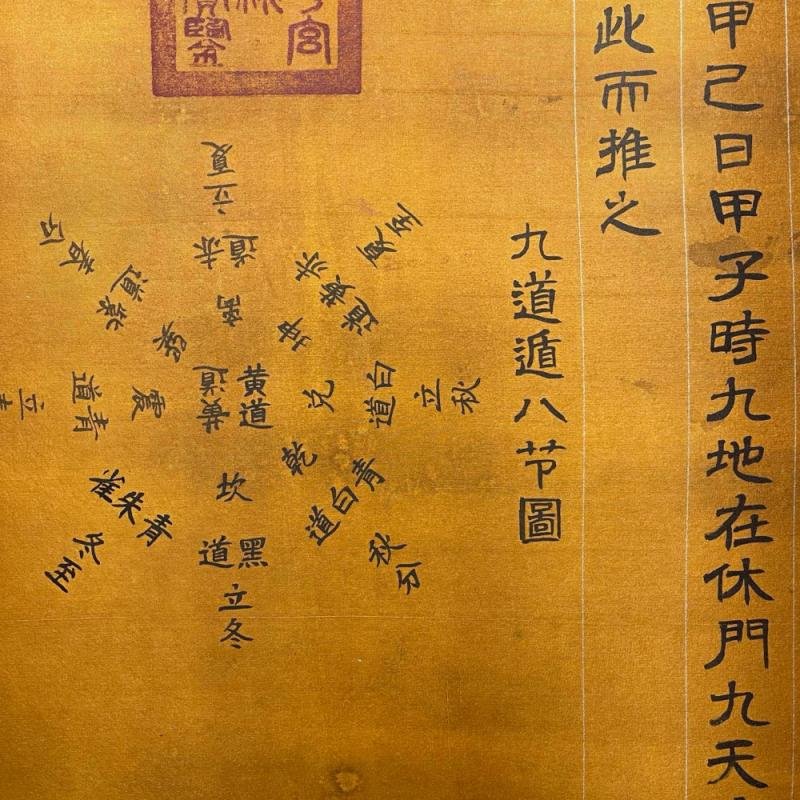 甲己日甲子時九地在休門九天
此而推之
九道遁八节圖
立夏
赤道
离
夏至
赤黃道
坤
立秋
白道
兑
秋分
青白道
乾
立冬
黑道
坎
冬至
青朱雀
立
青道
震
春分
紫道
巽
黃道
黃道
宮